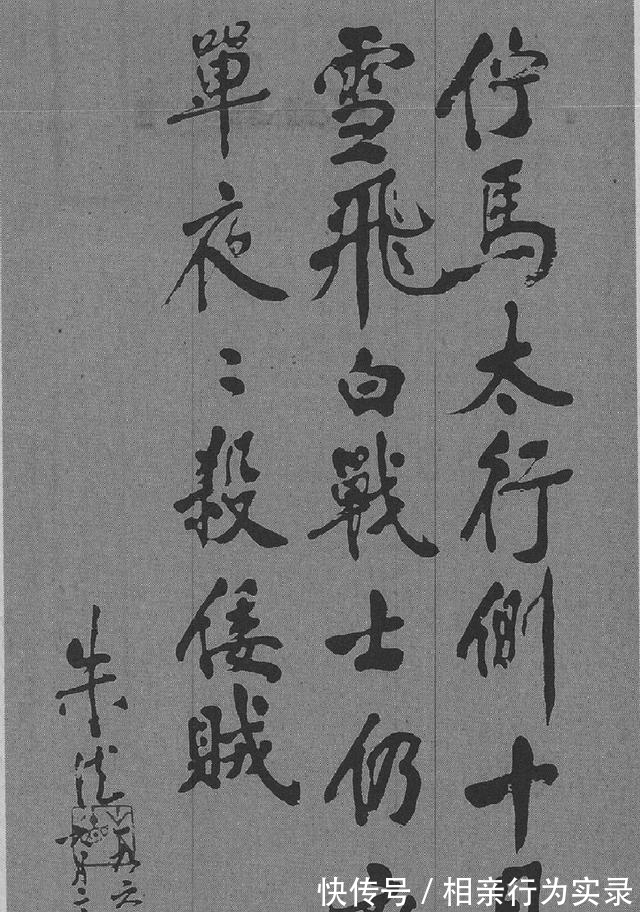 佇馬太行側十月
雪飛白戰士仍衣
單夜〻殺倭賊
朱德
一九六
快传号/相亲行为实录